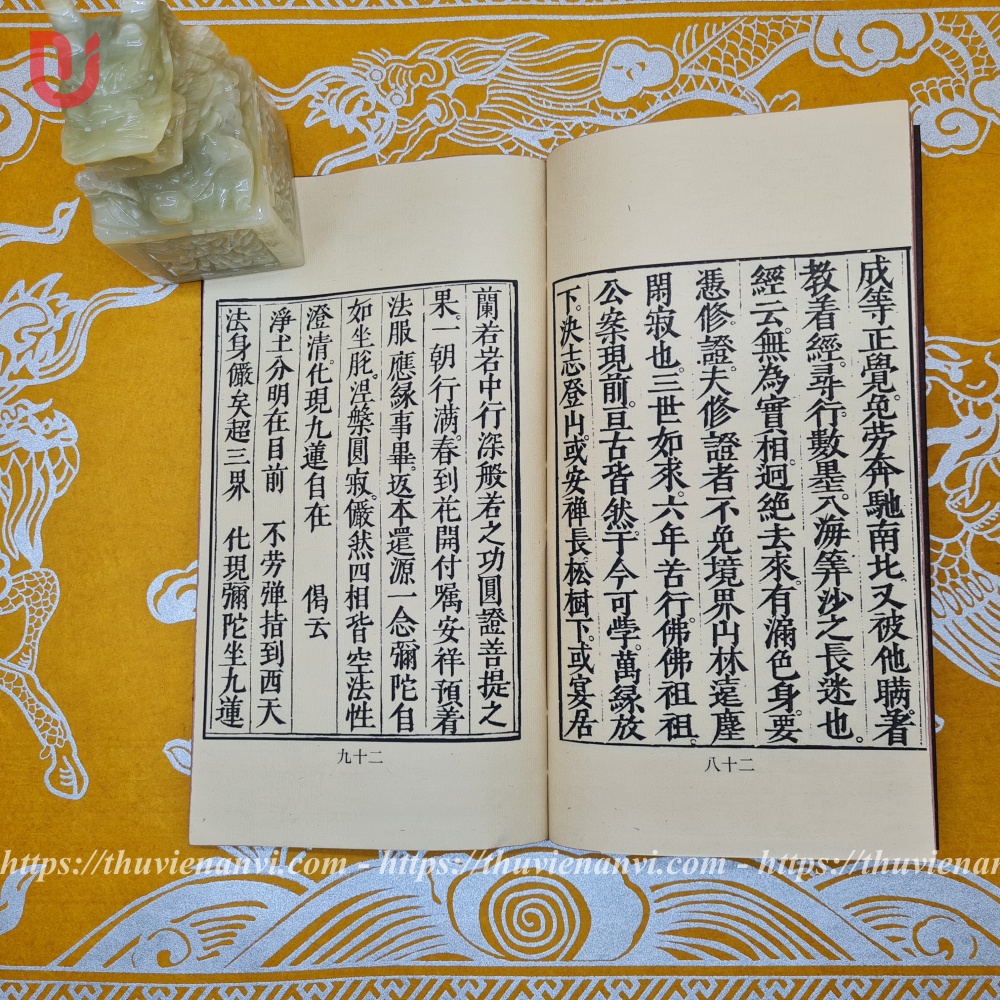 成等正覺免劳奔馳南北又被他瞞著
教看經尋行數墨入海筭沙之長迷也
經云無為實相迥絶去來有漏色身要
憑修證夫修證者不免境界山林遠塵
閑寂也三世如來六年苦行佛佛祖祖
公案現前亘古皆然于今可學萬緣放
下決志登山或安禅長松樹下或宴居
二十八
蘭若岩中行深般若之功圓證菩提之
果一朝行满春到花開付嘱安祥預着
法服應緣事畢返本還源一念彌陀自
如坐脱涅槃圓寂儼然四相皆空法性
澄清化現九蓮自在 偈云
淨土分明在目前 不劳弹指到西天
法身儼矣超三界 化現彌陀坐九蓮
二十九
https://thuvienanvi.com - https://thuvienanvi.com - https://thuvienan